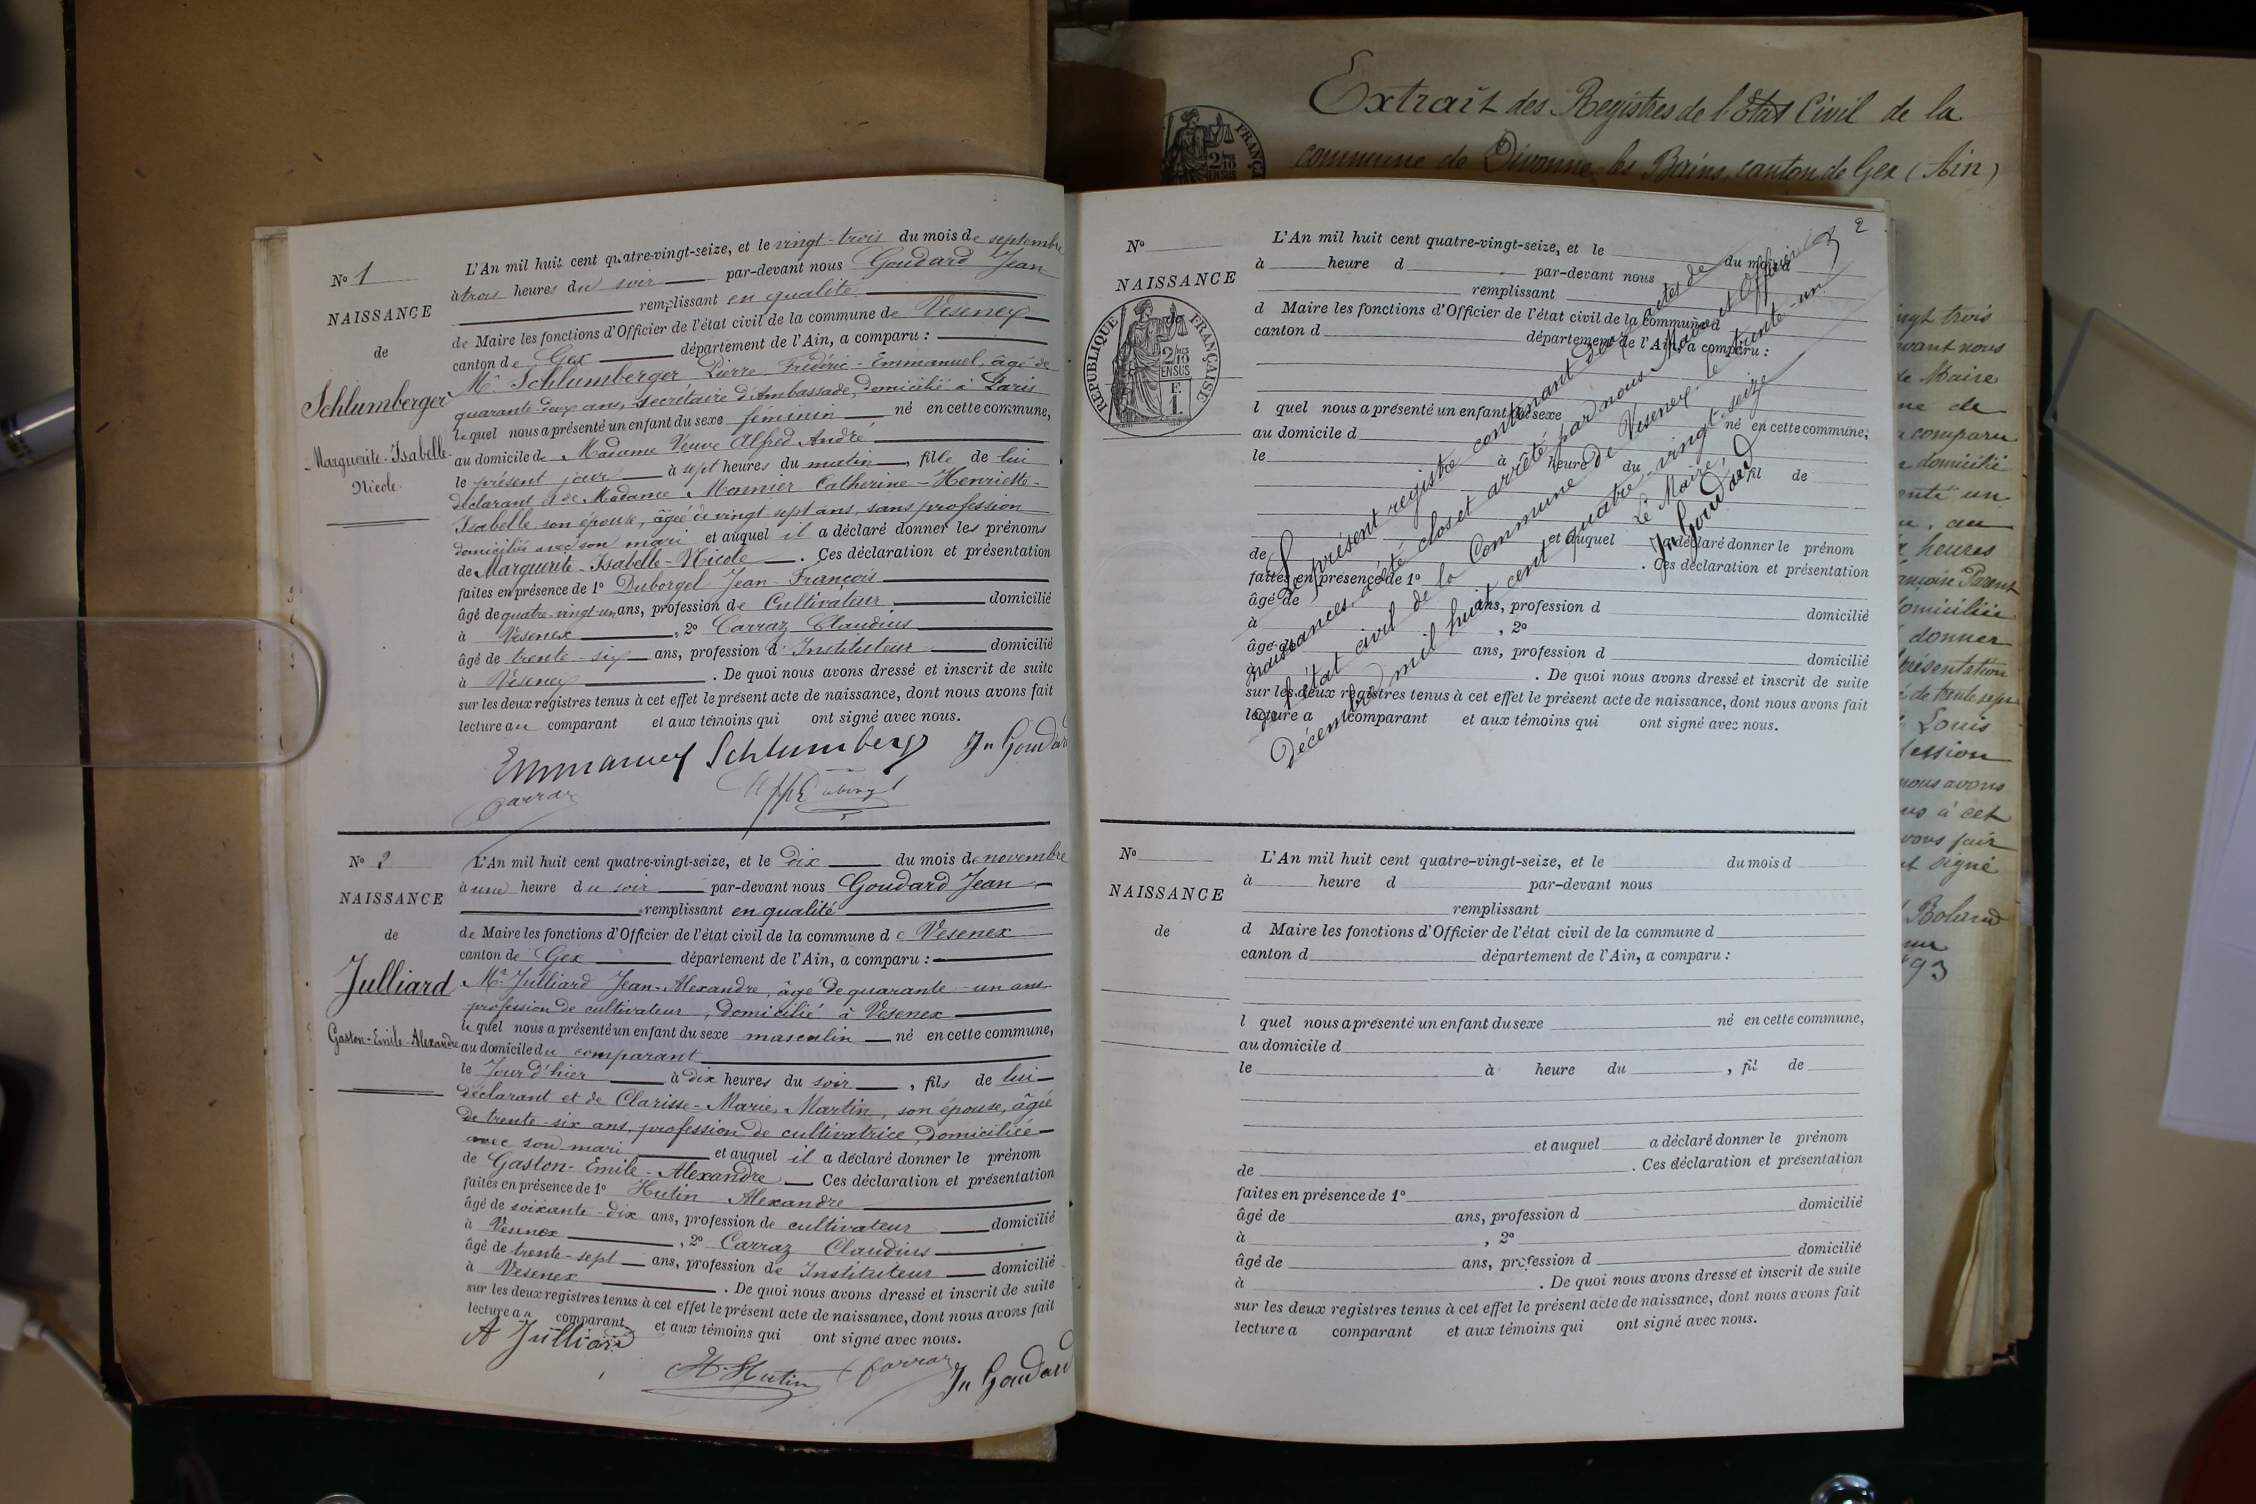 Extrait des Registres de l'Etat Civil de la
commune de Divonne-les-Bains, canton de Gex (Ain)
N° 1
NAISSANCE
de
Schlumberger
Marguerite-Isabelle-
Nicole.
L'An mil huit cent quatre-vingt-seize, et le vingt-trois du mois de septembre
à trois heures du soir par-devant nous Goudard Jean
remplissant en qualité
de Maire les fonctions d'Officier de l'état civil de la commune de Vesenex
canton de Gex département de l'Ain, a comparu :
Mr Schlumberger Pierre-Frédéric-Emmanuel, âgé de
quarante-deux ans, secrétaire d'Ambassade, domicilié à Paris
lequel nous a présenté un enfant du sexe féminin né en cette commune,
au domicile de Madame Veuve Alfred André
le présent jour à sept heures du matin, fille de lui
déclarant et de Madame Monnier Catherine-Henriette-
Isabelle, son épouse, âgée de vingt sept ans, sans profession
domiciliée avec son mari et auquel il a déclaré donner les prénoms
de Marguerite-Isabelle-Nicole. Ces déclaration et présentation
faites en présence de 1° Duborgel Jean-François
âgé de quatre-vingt-un ans, profession de Cultivateur domicilié
à Vesenex, 2° Carraz Claudius
âgé de trente-six ans, profession d'Instituteur domicilié
à Vesenex. De quoi nous avons dressé et inscrit de suite
sur les deux registres tenus à cet effet le présent acte de naissance, dont nous avons fait
lecture au comparant et aux témoins qui ont signé avec nous.
Emmanuel Schlumberger Jn Goudard
Carraz
N° 2
NAISSANCE
de
Julliard
Gaston-Emile-Alexandre
L'An mil huit cent quatre-vingt-seize, et le dix du mois de novembre
à une heure du soir par-devant nous Goudard Jean
remplissant en qualité
de Maire les fonctions d'Officier de l'état civil de la commune de Vesenex
canton de Gex département de l'Ain, a comparu :
Mr Julliard Jean-Alexandre, âgé de quarante-un ans
profession de cultivateur, domicilié à Vesenex
lequel nous a présenté un enfant du sexe masculin né en cette commune,
au domicile du comparant
le Jour d'hier à dix heures du soir, fils de lui
déclarant et de Clarisse-Marie Martin, son épouse, âgée
de trente-six ans, profession de cultivatrice, domiciliée
avec son mari et auquel il a déclaré donner le prénom
de Gaston-Emile-Alexandre. Ces déclaration et présentation
faites en présence de 1° Hutin Alexandre
âgé de soixante-dix ans, profession de cultivateur domicilié
à Vesenex, 2° Carraz Claudius
âgé de trente-sept ans, profession de Instituteur domicilié
à Vesenex. De quoi nous avons dressé et inscrit de suite
sur les deux registres tenus à cet effet le présent acte de naissance, dont nous avons fait
lecture au comparant et aux témoins qui ont signé avec nous.
A Julliard
A. Hutin Carraz Jn Goudard
2
N°
NAISSANCE
RÉPUBLIQUE FRANÇAISE
L'An mil huit cent quatre-vingt-seize, et le du mois d
à heure d par-devant nous
remplissant
d Maire les fonctions d'Officier de l'état civil de la commune d
canton d département de l'Ain, a comparu :
l quel nous a présenté un enfant du sexe né en cette commune,
au domicile d
le à heure du fil de
et auquel a déclaré donner le prénom
de . Ces déclaration et présentation
faites en présence de 1°
âgé de ans, profession d domicilié
à , 2°
âgé de ans, profession d domicilié
à . De quoi nous avons dressé et inscrit de suite
sur les deux registres tenus à cet effet le présent acte de naissance, dont nous avons fait
lecture a comparant et aux témoins qui ont signé avec nous.
Le présent registre contenant deux actes de
naissances, a été clos et arrêté par nous Maire et Officier
de l'état civil de la Commune de Vesenex le trente-un
Décembre mil huit cent quatre-vingt-seize
Le Maire,
Jn Goudard
N°
NAISSANCE
de
L'An mil huit cent quatre-vingt-seize, et le du mois d
à heure d par-devant nous
remplissant
d Maire les fonctions d'Officier de l'état civil de la commune d
canton d département de l'Ain, a comparu :
l quel nous a présenté un enfant du sexe né en cette commune,
au domicile d
le à heure du , fil de
et auquel a déclaré donner le prénom
de . Ces déclaration et présentation
faites en présence de 1°
âgé de ans, profession d domicilié
à , 2°
âgé de ans, profession d domicilié
à . De quoi nous avons dressé et inscrit de suite
sur les deux registres tenus à cet effet le présent acte de naissance, dont nous avons fait
lecture a comparant et aux témoins qui ont signé avec nous.
trois
nous
Maire
de
comparu
domicilié
un
au
heures
domiciliée
donner
présentation
de trente sept
Louis
nous avons
à cet
signé
Boland
93